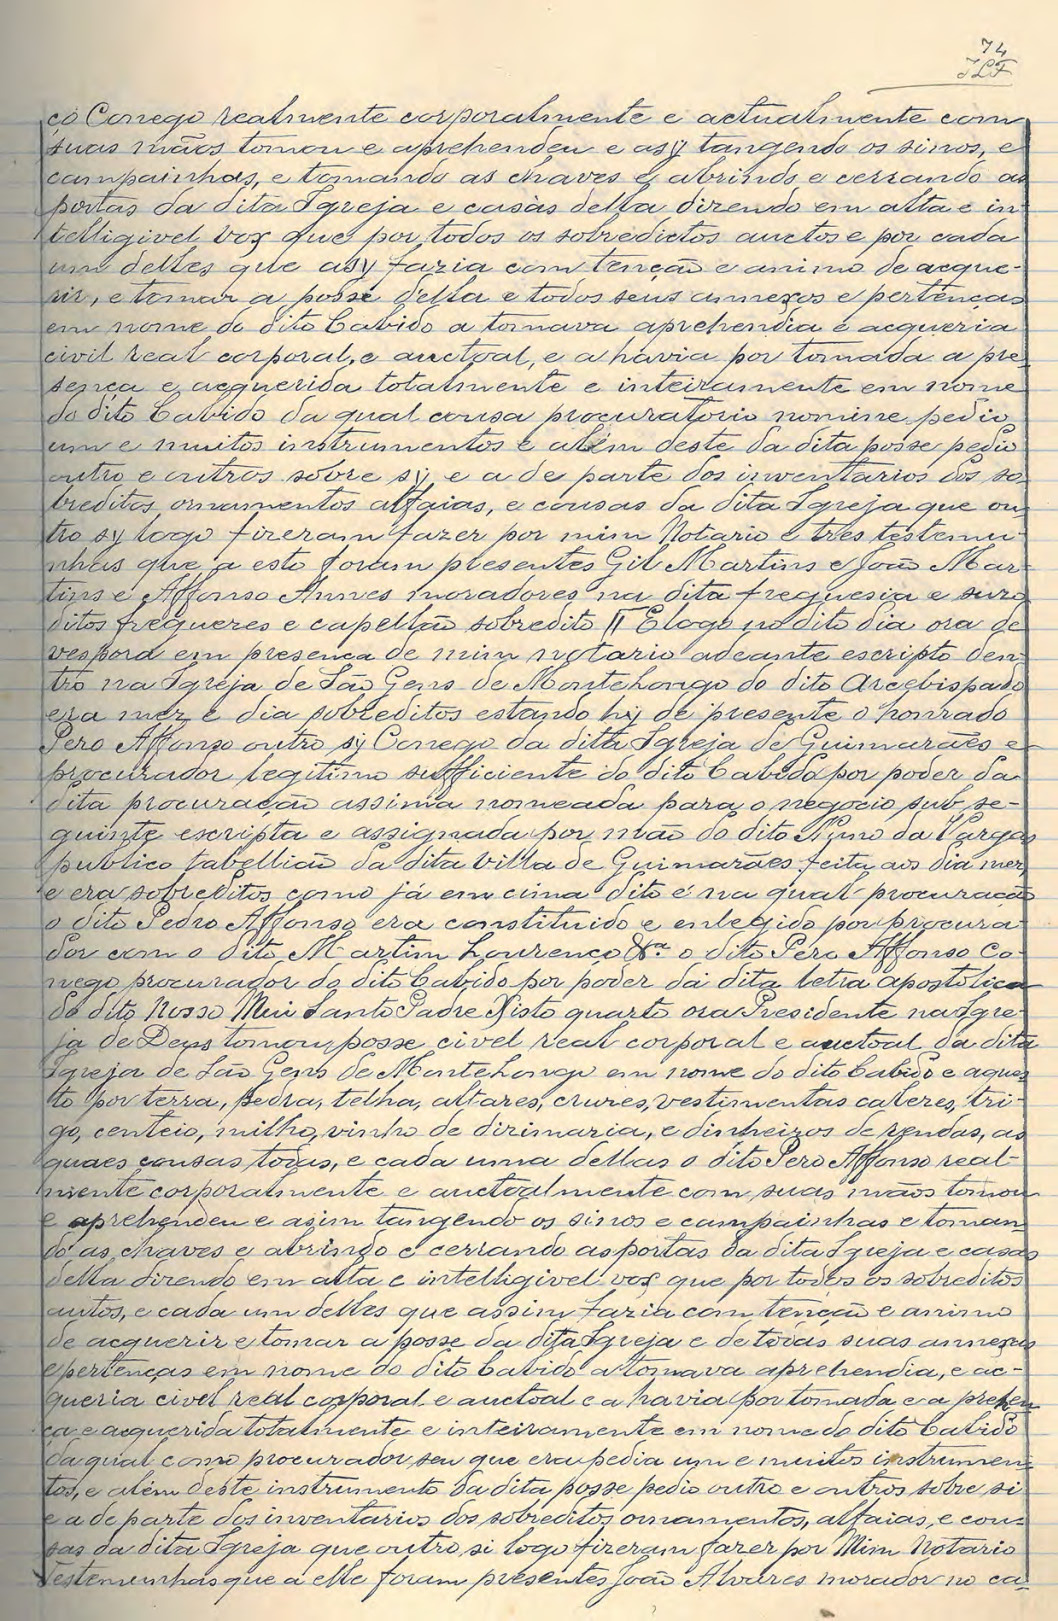 74
JLF
ço Conego realmente corporalmente e actualmente com
suas mãos tomou e aprehendeu e asy tangendo os sinos, e
campainhas, e tomando as chaves e abrindo e cerrando as
portas da dita Igreja e casas della dizendo em alta e in-
telligivel vox que por todos os sobredictos auctos e por cada
um delles que asy fazia com tenção e animo de acque-
rir, e tomar a posse della e todos seus annexos e pertenças
em nome do dito Cabido a tomava aprehendia e acqueria
civil real corporal, e auctoal, e a havia por tomada a pre
sença e acquerida totalmente e inteiramente em nome
do dito Cabido da qual cousa procuratorio nomine pedio
um e muitos instrumentos e além deste da dita posse pedio
outro e outros sobre sy, e a de parte dos inventarios dos so
breditos ornamentos alfaias, e cousas da dita Igreja que ou
tro sy logo fizeram fazer por mim Notario e tres testemu-
nhas que a esto foram presentes Gil Martins e João Mar-
tins e Affonso Annes moradores na dita freguesia e suro
ditos fregueres e capellão sobredito E logo no dito dia ora de
vespora em presença de mim notario adeante escripto den
tro na Igreja de São Gens de Montelongo do dito Arcebispado
era mez e dia sobreditos estando hy de presente o honrado
Pero Affonso outro sy Conego da dita Igreja de Guimarães e
procurador legitimo sufficiente do dito Cabido por poder da
dita procuração assima nomeada para o negocio sub se-
guinte escripta e assignada por mão do dito Nuno da Vargas
publico tabellião da dita Villa de Guimarães feita aos dia mez
e era sobreditos como já em cima dito é na qual procuração
o dito Pedro Affonso era constituido e enlegido por procura
dor com o dito Martim Lourenço &ra o dito Pero Affonso Co-
nego procurador do dito Cabido por poder da dita letra apostolica
do dito Nosso Mui Santo Padre Xisto quarto ora Presidente na Igre-
ja de Deus tomou posse civel real corporal e auctoal da dita
Igreja de São Gens de Montelongo em nome do dito Cabido e aques
to por terra, pedra, telha, altares, cruzes, vestimentas caleres, tri-
go, centeio, milho, vinho de dizimaria, e dinheiros de rendas, as
quaes cousas todas, e cada uma dellas o dito Pero Affonso real-
mente corporalmente e auctoalmente com suas mãos tomou
e aprehendeu e asim tangendo os sinos e campainhas e toman
do as chaves e abrindo e cerrando as portas da dita Igreja e casas
della dizendo em alta e intelligivel vox que por todos os sobreditos
autos, e cada um delles que assim fazia com tenção e animo
de acquerir e tomar a posse da dita Igreja e de todas suas annexas
e pertenças em nome do dito Cabido a tomava aprehendia, e ac-
queria civel real corporal e auctoal e a havia por tomada e a prehen
ça e acquerida totalmente e inteiramente em nome do dito Cabido
da qual como procurador seu que era pedia um e muitos instrumen
tos, e além deste instrumento da dita posse pedio outro e outros sobre si
e a de parte dos inventarios dos sobreditos ornamentos, alfaias, e cou-
sas da dita Igreja que outro si logo fizeram fazer por Mim Notario
Testemunhas que a elle foram presentes João Alvares morador no ca-